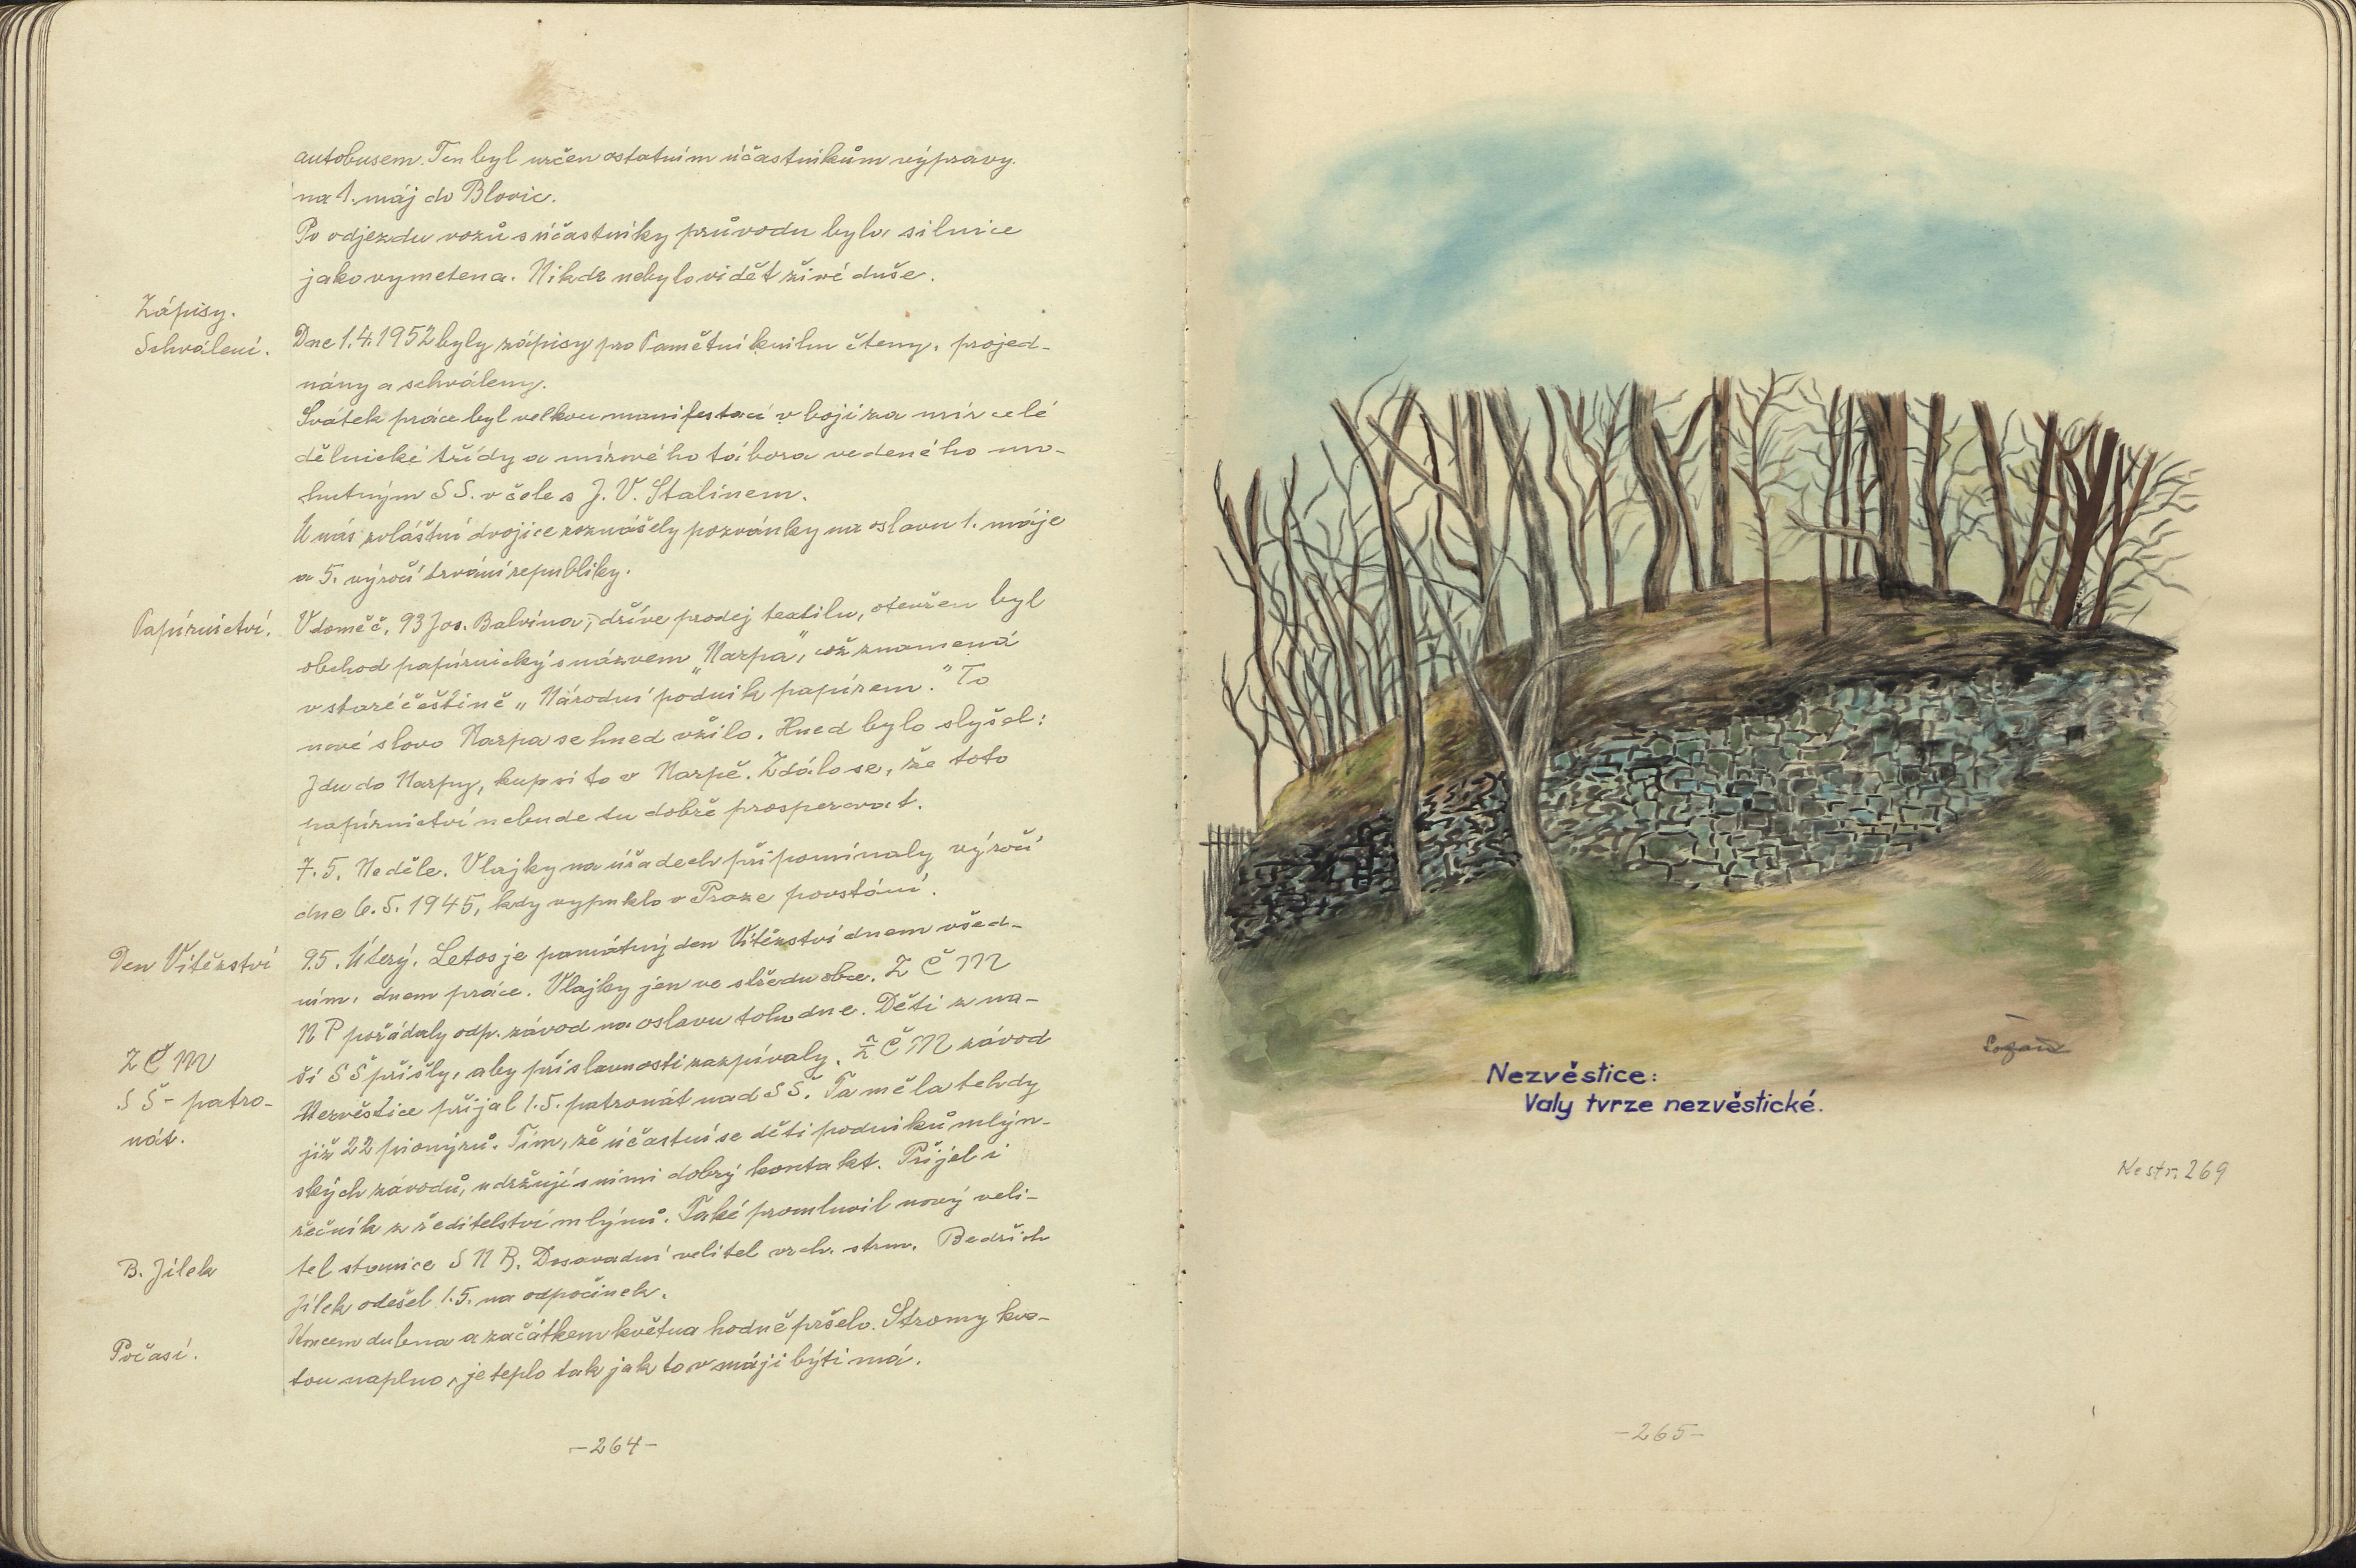 autobusem. Ten byl určen ostatním účastníkům výpravy
na 1. máj do Blovic.
Po odjezdu vozů s účastníky průvodu byla silnice
jako vymetena. Nikde nebylo vidět živé duše.
Zápisy.
Schválení.
Dne 1.4.1952 byly zápisy pro Pamětní knihu čteny, projed-
nány a schváleny.
Svátek práce byl velkou manifestací v boji za mír celé
dělnické třídy a mírového tábora vedeného mo-
hutným SS. v čele s J. V. Stalinem.
U nás zvláštní dvojice roznášely pozvánky na oslavu 1. máje
a 5. výročí trvání republiky.
Papírnictví.
V domě č. 93 Jos. Balvína, dříve prodej textilu, otevřen byl
obchod papírnický s názvem „Narpa", což znamená
v staré češtině „Národní podnik papírem." To
nové slovo Narpa se hned vžilo. Hned bylo slyšet:
Jdu do Narpy, kup si to v Narpě. Zdálo se, že toto
papírnictví nebude tu dobře prosperovat.
7.5. Neděle. Vlajky na úřadech připomínaly výročí
dne 6.5.1945, kdy vypuklo v Praze povstání.
Den Vítězství
9.5. Úterý. Letos je památný den Vítězství dnem všed-
ním, dnem práce. Vlajky jen ve středu obce. ZČM
NP pořádaly odp. závod na oslavu toho dne. Děti z na-
ší SŠ přišly, aby při slavnosti zazpívaly. ZČM závod
ZČM
SŠ - patro-
nát.
Nezvěstice přijal 1.5. patronát nad SŠ. Ta měla tehdy
již 22 pionýrů. Tím, že účastní se děti podniků mlýn-
ských závodů, udržují s nimi dobrý kontakt. Přijel i
řečník z ředitelství mlýnů. Také promluvil nový veli-
tel stanice SNB. Dosavadní velitel vrch. strm. Bedřich
B. Jílek
Jílek odešel 1.5. na odpočinek.
Koncem dubna a začátkem května hodně pršelo. Stromy kve-
Počasí.
tou naplno, je teplo tak jak to v máji býti má.
-264-
Nezvěstice:
Valy tvrze nezvěstické.
Ke str. 269
-265-